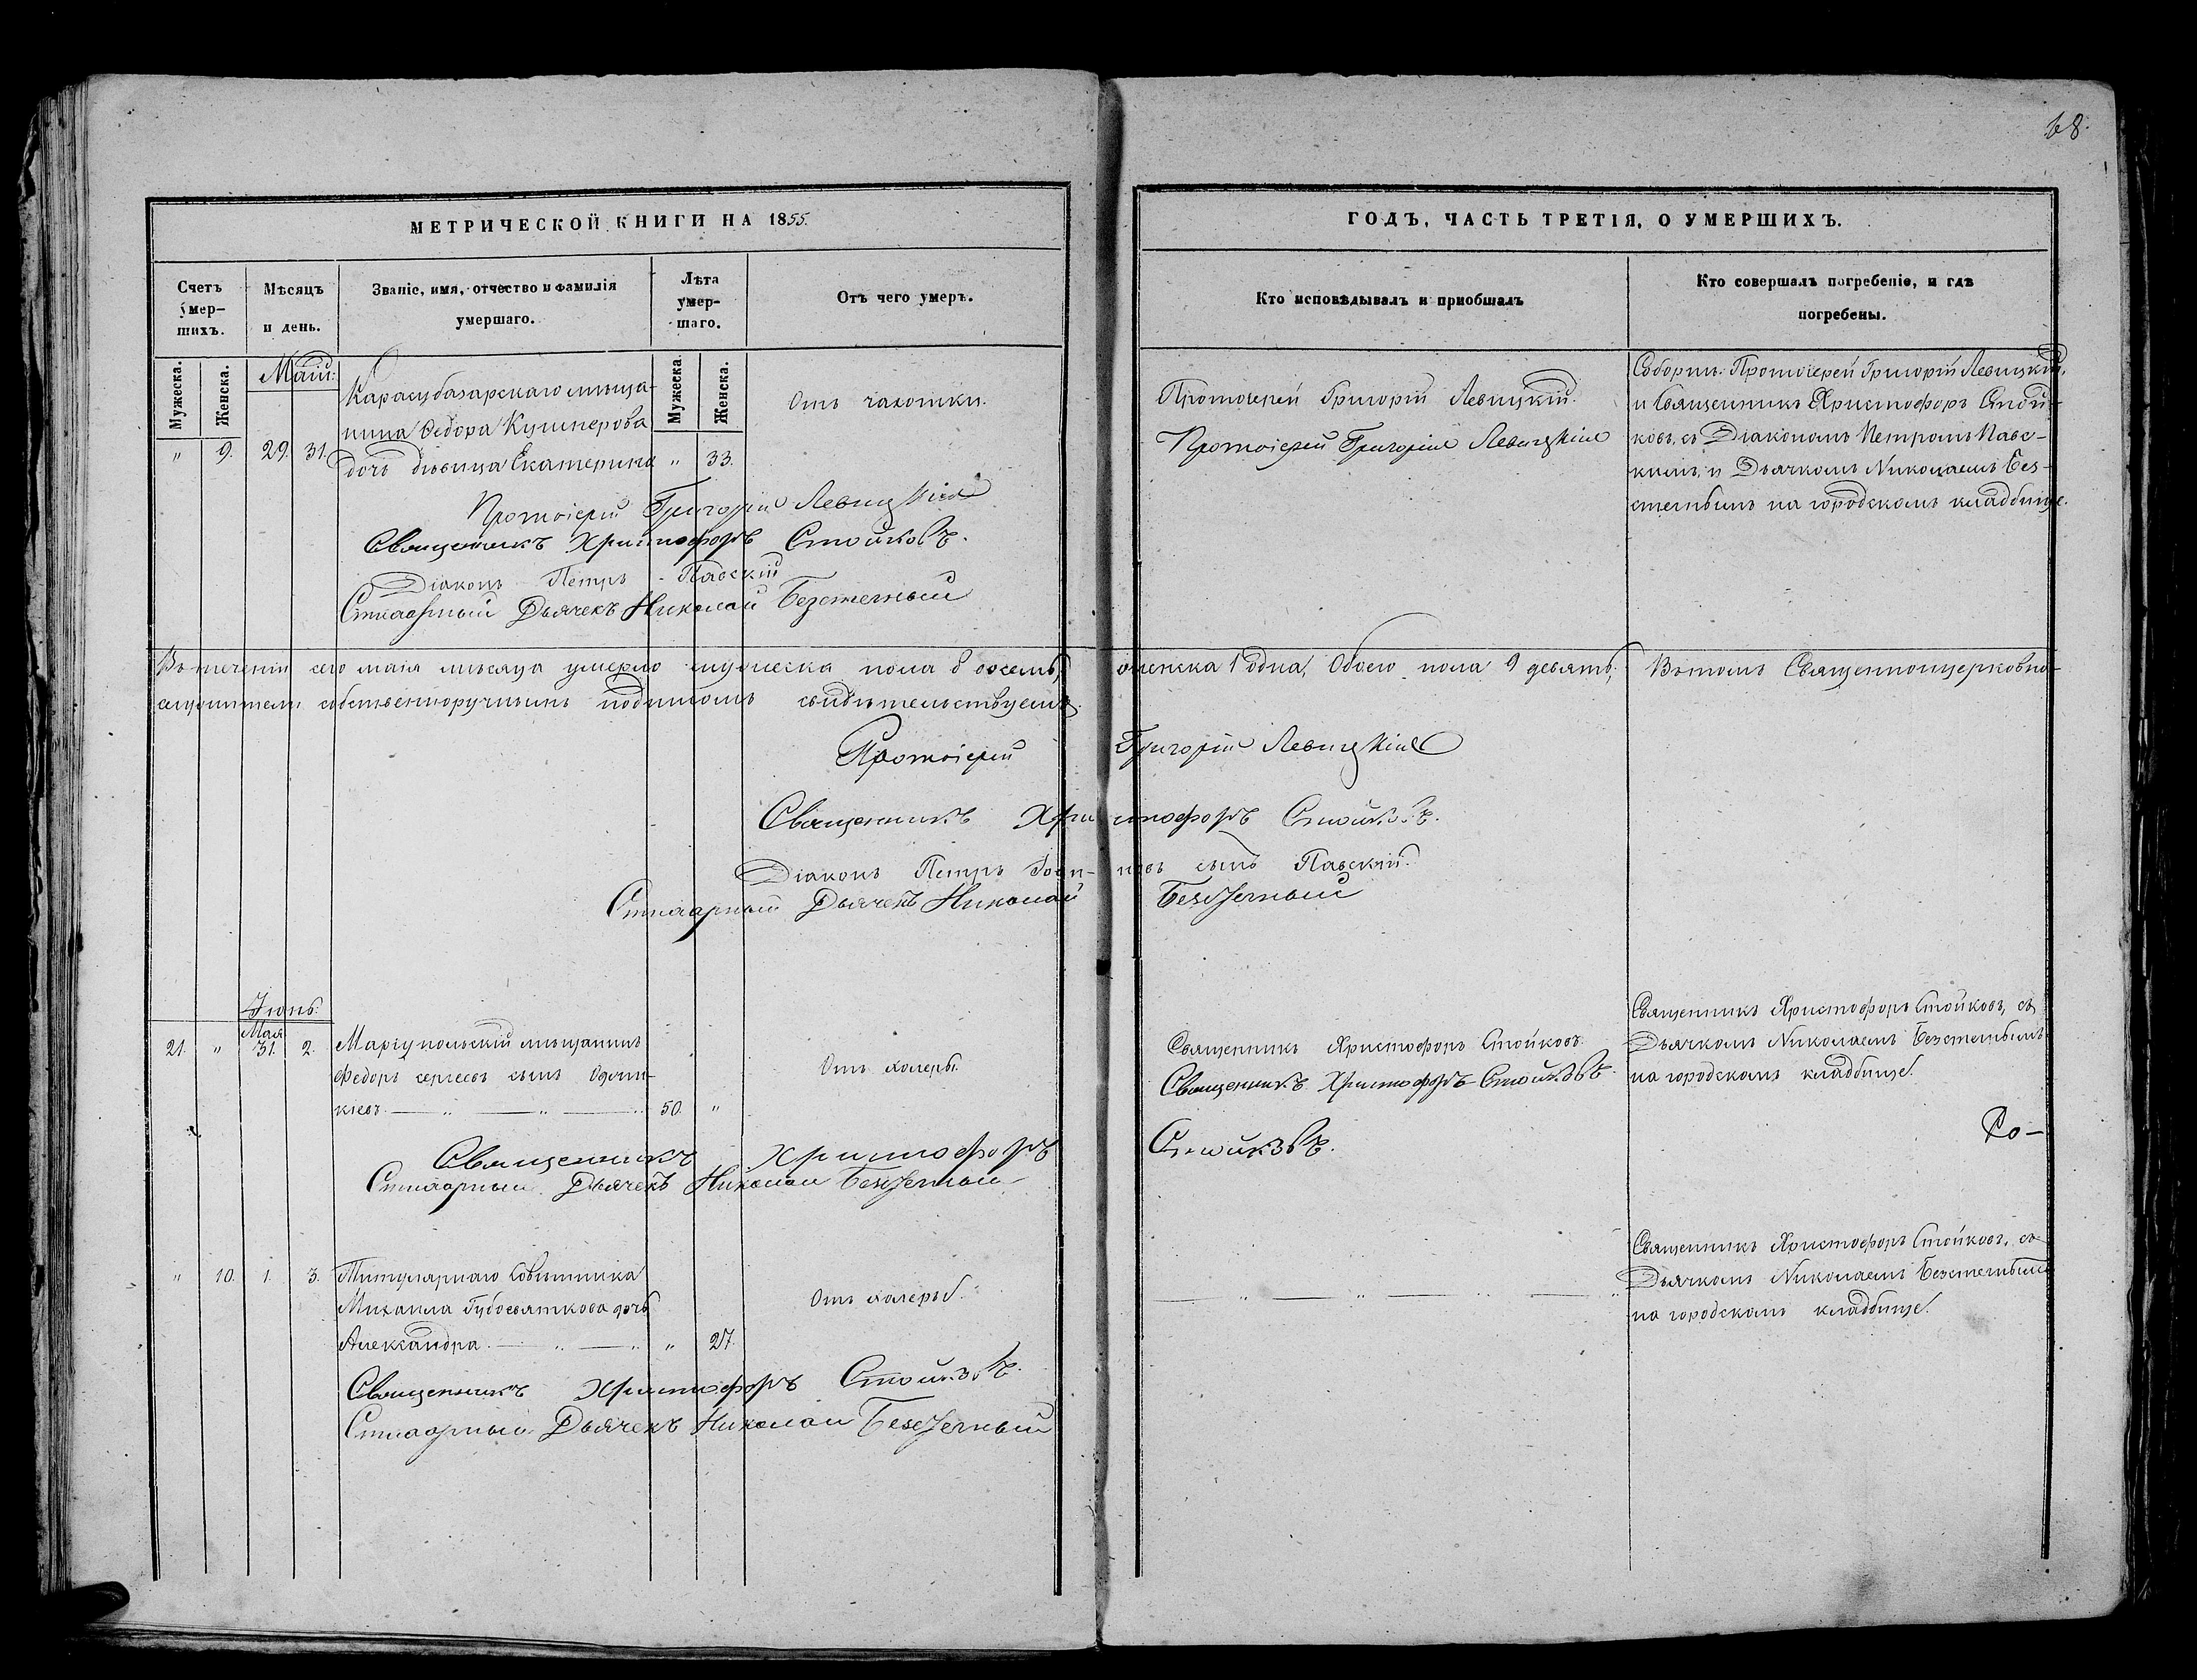 68.
МЕТРИЧЕСКОЙ КНИГИ НА 1855.
ГОДЪ, ЧАСТЬ ТРЕТІЯ, О УМЕРШИХЪ.
Счетъ умер-
шихъ.
Мѣсяцъ
и день.
Званіе, имя, отчество и фамилія
умершаго.
Лѣта
умер-
шаго.
Отъ чего умеръ.
Кто исповѣдывалъ и пріобщалъ
Кто совершалъ погребеніе, и гдѣ
погребены.
Мужеска.
Женска.
Мужеска
Женска.
Маій.
Карасубазарскаго мѣща-
нина Ѳедора Кушнерова
" 9. 29. 31. дочь дѣвица Екатерина " 33.
Отъ чахотки.
Протоіерей Григорій Левицкій.
Протоіерей Григорій Левицкій
Соборнѣ: Протоіерей Григорій Левицкій,
и Священникъ Христофоръ Стой-
ковъ, съ Діакономъ Петромъ Павс-
кимъ, и Дьячкомъ Николаемъ Без-
счетнымъ на городскомъ кладбищѣ.
Протоіерей Григорій Левицкій
Священникъ Христофоръ Стойковъ.
Діаконъ Петръ Павскій
Стихарный Дьячекъ Николай Безсчетный
Въ теченіи сего маія мѣсяца умерло мужеска пола 8 восемь, женска 1 одна, Обоего пола 9 девять; Въ томъ Священноцерковно-
служители собственноручнымъ подписомъ свидѣтельствуемъ.
Протоіерей Григорій Левицкій
Священникъ Христофоръ Стойковъ.
Діаконъ Петръ Іоси- повъ сынъ Павскій.
Стихарный Дьячекъ Николай Безсчетный
Іюнь.
Мая
21. " 31. 2. Маріупольскій мѣщанинъ
Федоръ сергеевъ сынъ
кіевъ. — " — " — 50. "
Отъ холеры.
Священникъ Христофоръ Стойковъ.
Священникъ Христофоръ Стойковъ
Священникъ Христофоръ Стойковъ, съ
Дьячкомъ Николаемъ Безсчетнымъ
на городскомъ кладбищѣ.
Священникъ Христофоръ Стойковъ.
Стихарный Дьячекъ Николай Безсчетный
" 10. 1. 3. Титулярнаго Совѣтника
Михаила Губосвяткова дочь
Александра. — " — " 27.
Отъ холеры.
— " — " — " — "
Священникъ Христофоръ Стойковъ, съ
Дьячкомъ Николаемъ Безсчетнымъ
на городскомъ кладбищѣ.
Священникъ Христофоръ Стойковъ.
Стихарный Дьячекъ Николай Безсчетный